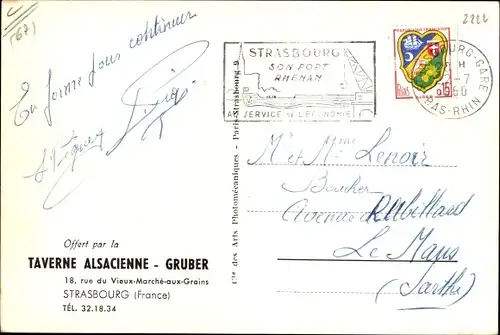 (67)
2222
En forme pour continuer
STRASBOURG
SON PORT
RHENAN
AU SERVICE DE L'ÉCONOMIE
REPUBLIQUE FRANCAISE
0,15
STRASBOURG-GARE
BAS-RHIN
Cie des Arts Photomécaniques - Paris-Strasbourg-9
Mr et Mme Lenoir
Boucher
Avenue Rubillard
Le Mans
(Sarthe)
Offert par la
TAVERNE ALSACIENNE - GRUBER
18, rue du Vieux-Marché-aux-Grains
STRASBOURG (France)
TÉL. 32.18.34